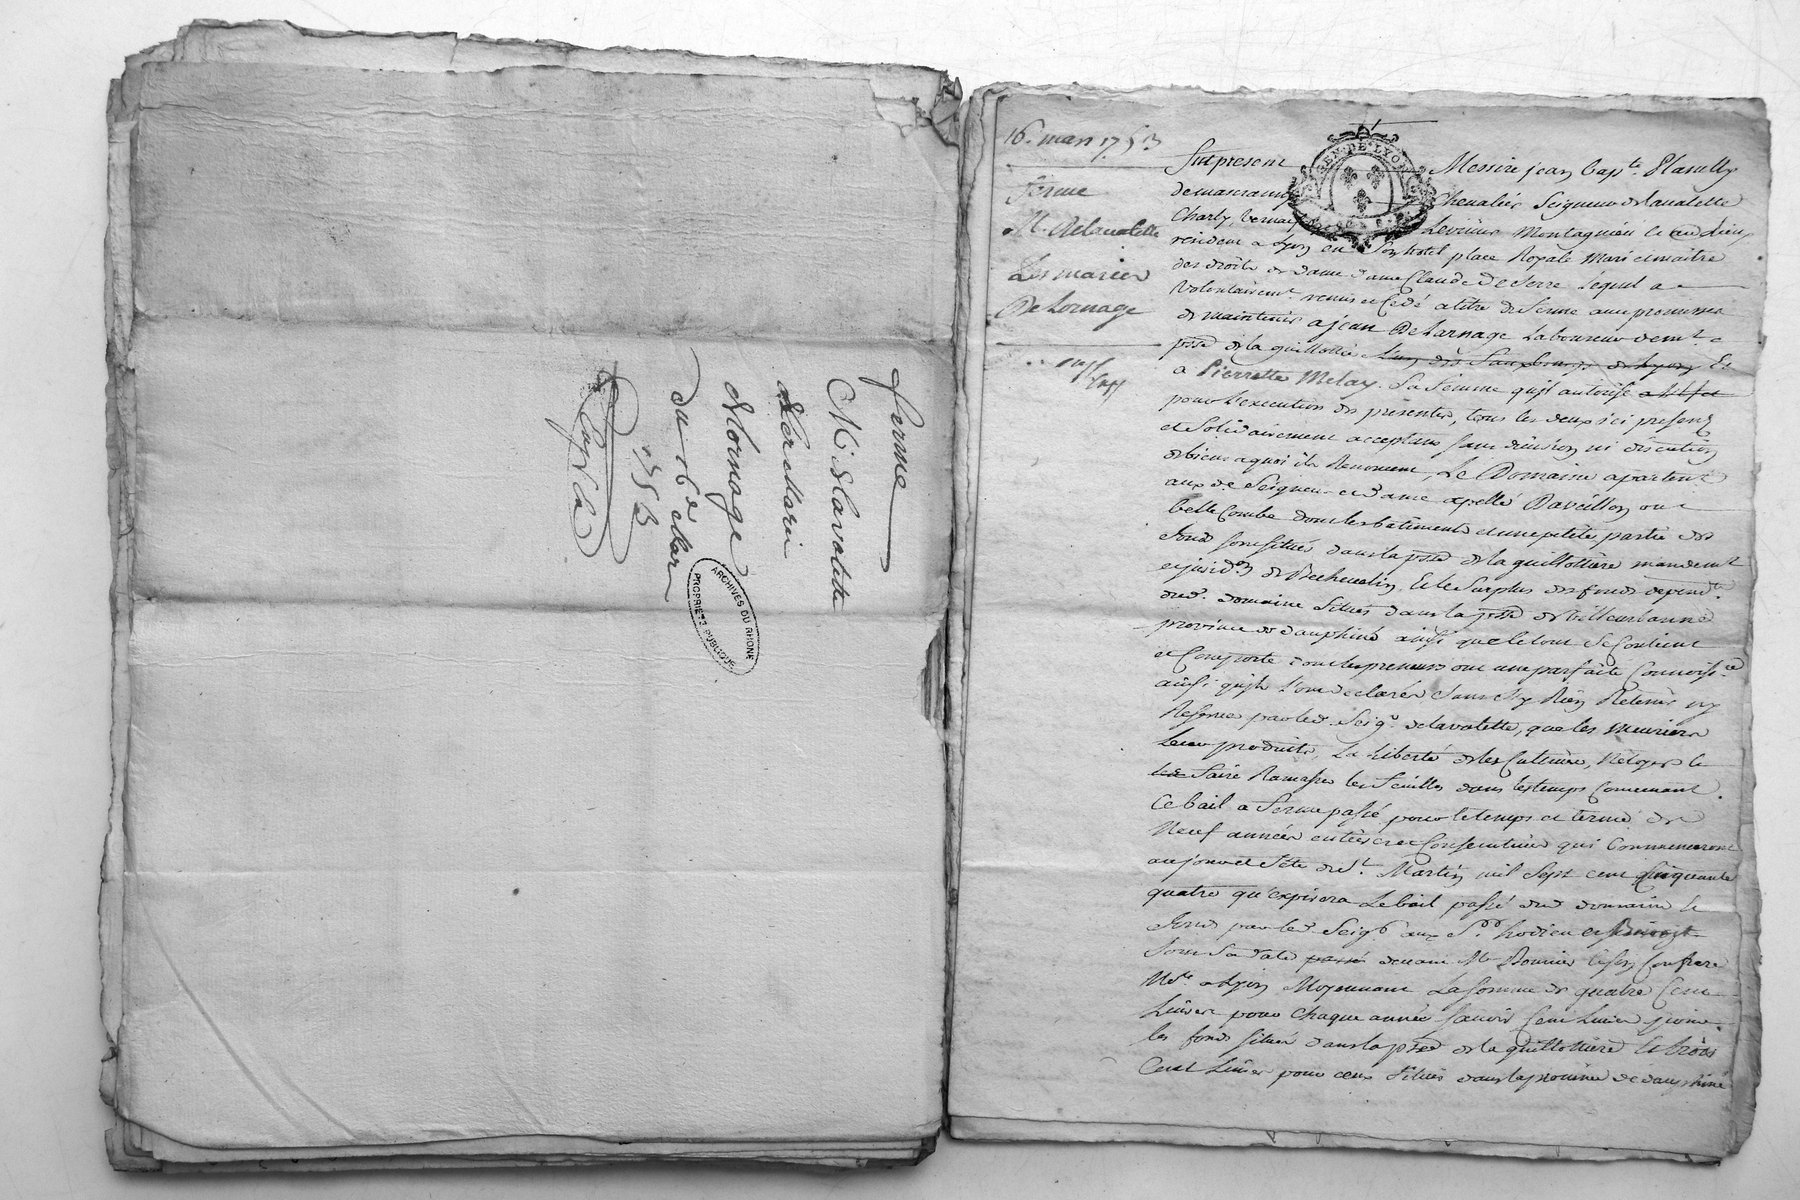 ferme
Mr Delavalette
Les Marie
Delornage
du 16e Mars
1753
ARCHIVES DU RHONE
PROPRIETE PUBLIQUE
16. mars 1753
ferme
M. Delavalette
Les mariés
De Lornage
GEN. DE LYON
Fut present Messire jean Bapte. Planelly
demascranny Chevalier Seigneur de lavalette
Charly, Vernaison Montagnieu
resident a Lyon en Son hotel place Royale Mari et maitre
des droits de dame Claude De Serre Lequel a
Volontairemt. remis et Cedé a titre de ferme avec promesse
de maintenir a jean De Larnage Laboureur demt. e
psse de la guillotiere L'un des fauxbourgs de Lyon Et
a Pierrette Melay Sa femme qu'il autorise a l'effet
pour L'execution des presentes, tous les deux ici presents
et Solidairement acceptans sans division ni discution
de biens a quoi ils Renoncent, Le Domaine apartent
aux d. Seigneur et Dame apellé Daveillon ou
belle Combe dont les batiments et une petite partie des
fonds sont situés dans la psse de la guillottiere mandemt
et jurid. de Bechevelin, Et le Surplus des fonds dependt.
dud. domaine Situés dans la psse de Villeurbanne
province de dauphiné ainsi que le tout Se Contient
et Comporte dont les preneurs ont une parfaite Connoissce
ainsi qu'ils l'ont declaré, Sans Ny Rien Retenir ny
Reserver par led. Seigr. delavalette, que les meuriers
Leurs produits, La Liberté de les Cultiver, Netoyer Et
faire Ramasser les feuilles dans les temps Convenant.
Ce bail a ferme passé pour le temps et terme de
Neuf années entieres et Consecutives qui Commenceront
au jour et fête de St. Martin mil Sept cent Cinquante
quatre qu'expirera Le bail passé dud. domaine Et
fonds par led. Seigr aux Srs hodieu et Benoist
Sous Sa date passé devant Me Bonnier Confrere
Nre. a Lyon Moyennant La Somme de quatre Cent
Livres pour chaque année Savoir Cent Livres pour
les fonds situés dans la psse de la guillottiere Et trois
Cent Livres pour ceux Situés dans la province de dauphiné